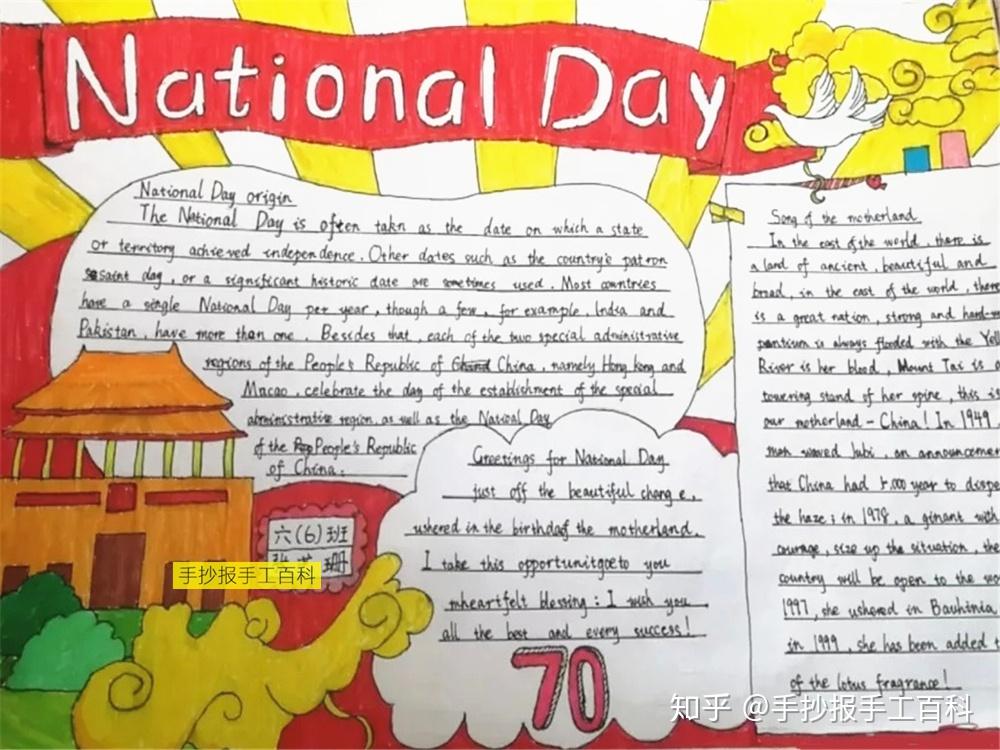 National Day
National Day origin
The National Day is often takn as the date on which a state
or territory achieved independence. Other dates such as the country's patron
saint day, or a significant historic date are sometimes used. Most countries
have a single National Day per year, though a few, for example, India and
Pakistan, have more than one. Besides that, each of the two special administrative
regions of the People's Republic of China, namely Hong Kong and
Macao, celebrate the day of the establishment of the special
administrative region, as well as the National Day
of the People's Republic
of China.
六(6)班
手抄报手工百科
Greetings for National Day
just off the beautiful change,
ushered in the birthday the motherland.
I take this opportunitgoeto you
mheartfelt blessing: I wish you
all the best and every success!
70
Song of the motherland
In the east of the world, there is
a land of ancient, beautiful and
broad, in the east of the world, there
is a great nation, strong and hard-w
is always flooded with the Yel
River is her blood, Mount Tai is a
towering stand of her spine, this is
our motherland - China! In 1949
man waved lubi, an announcemen
that China had 5,000 year to dispe
the haze; in 1978, a ginant with
courage, size up the situation, the
country will be open to the wo
1997, she ushered in Bauhinia
in 1999, she has been added t
of the lotus fragrance!
知乎 @手抄报手工百科